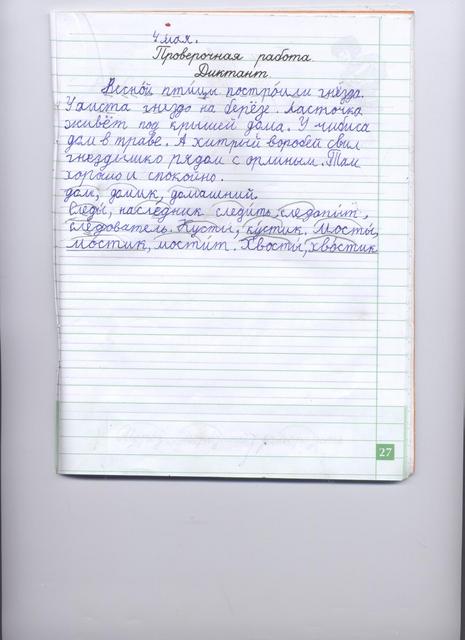 4 мая.
Проверочная работа.
Диктант
Весной птицы построили гнёзда.
У аиста гнездо на берёзе. Ласточка
живёт под крышей дома. У чибиса
дом в траве. А хитрый воробей свил
гнёздышко рядом с орлиным. Там
хорошо и спокойно.
дом, домик, домашний.
Следы, наследник следить следопыт,
следователь. Кусты, кустик. Мосты,
мостик, мостит. Хвосты, хвостик
27